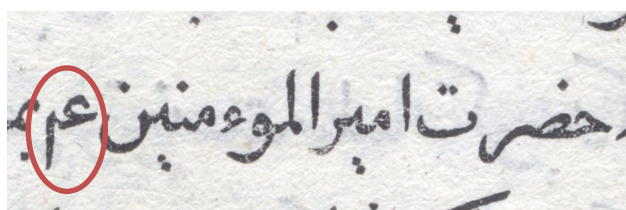 حضرت امیرالموءمنین عم